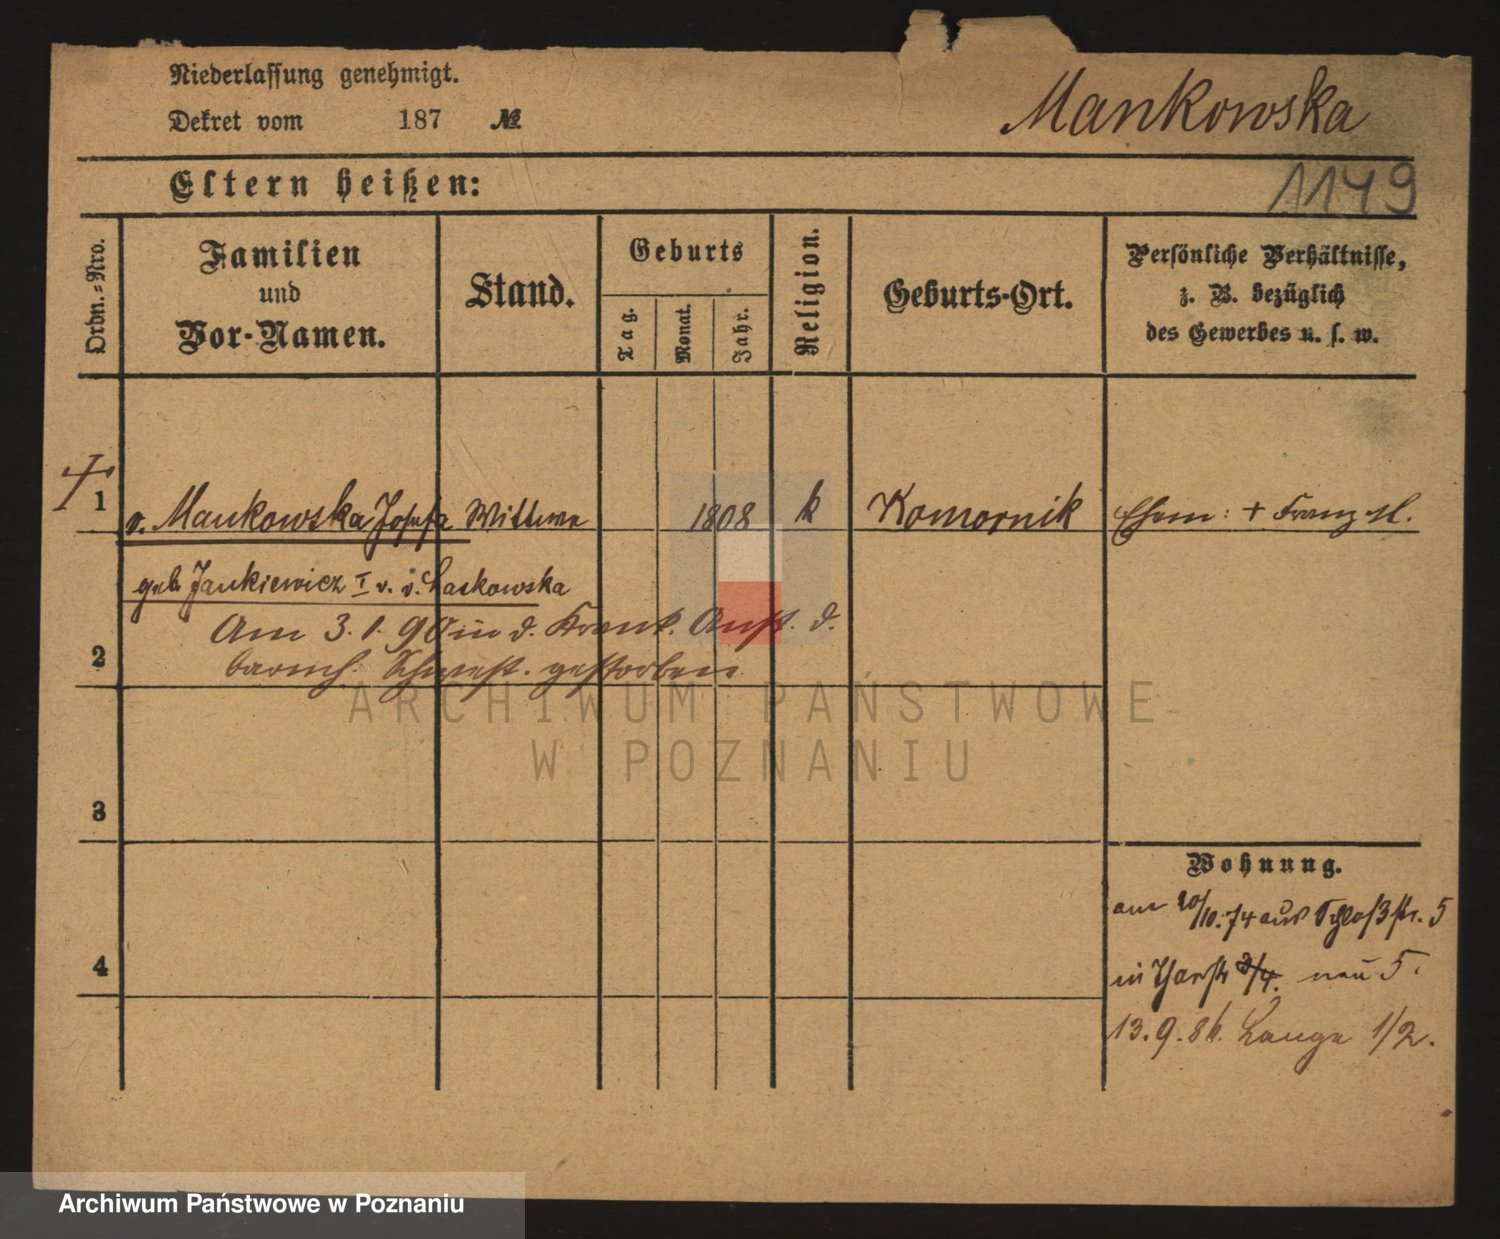 Niederlassung genehmigt.
Dekret vom 187 №
Mankowska
Eltern heißen:
1149
Ordn.-Nro.
Familien
und
Vor-Namen.
Stand.
Geburts
Tag.
Monat.
Jahr.
Religion.
Geburts-Ort.
Persönliche Verhältnisse,
z. B. bezüglich
des Gewerbes u. s. w.
1
v. Mankowska Josefa Wittwe 1808 k Komornik Ehem: + Franz M.
geb. Jankiewicz I v. v. Laskowska
Am 3.1.90 in d. Krank. Anst. d.
2
barmh. Schwest. gestorben
ARCHIWUM PAŃSTWOWE
W POZNANIU
3
Wohnung.
am 20/10.74 aus Schloßstr. 5
4
in 3/4. neu 5.
13.9.86. Lange 1/2.
Archiwum Państwowe w Poznaniu